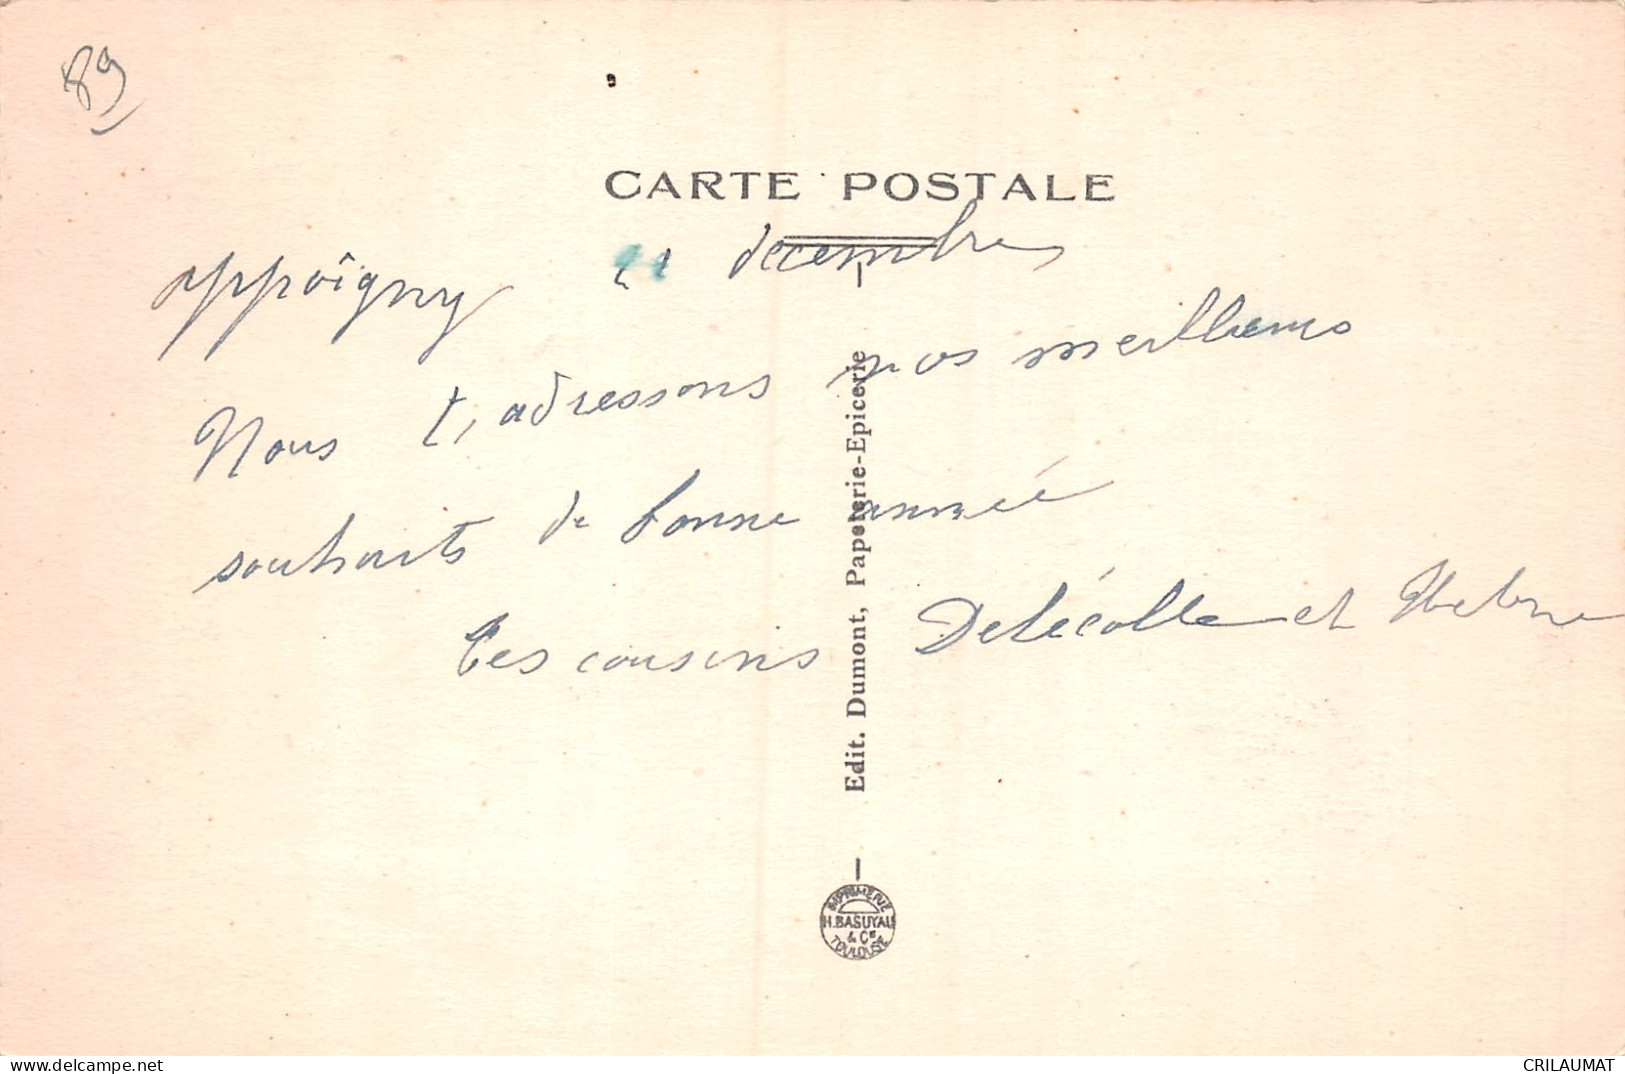 89
CARTE POSTALE
appoîgny 21 decembre
Nous t, adressons nos meilleurs
souhaits de bonne année
Tes cousins Delécolle et
Edit. Dumont, Papeterie-Epicerie
IMPRIMERIE
H. BASUYAU
& Cie
TOULOUSE
www.delcampe.net
CRILAUMAT